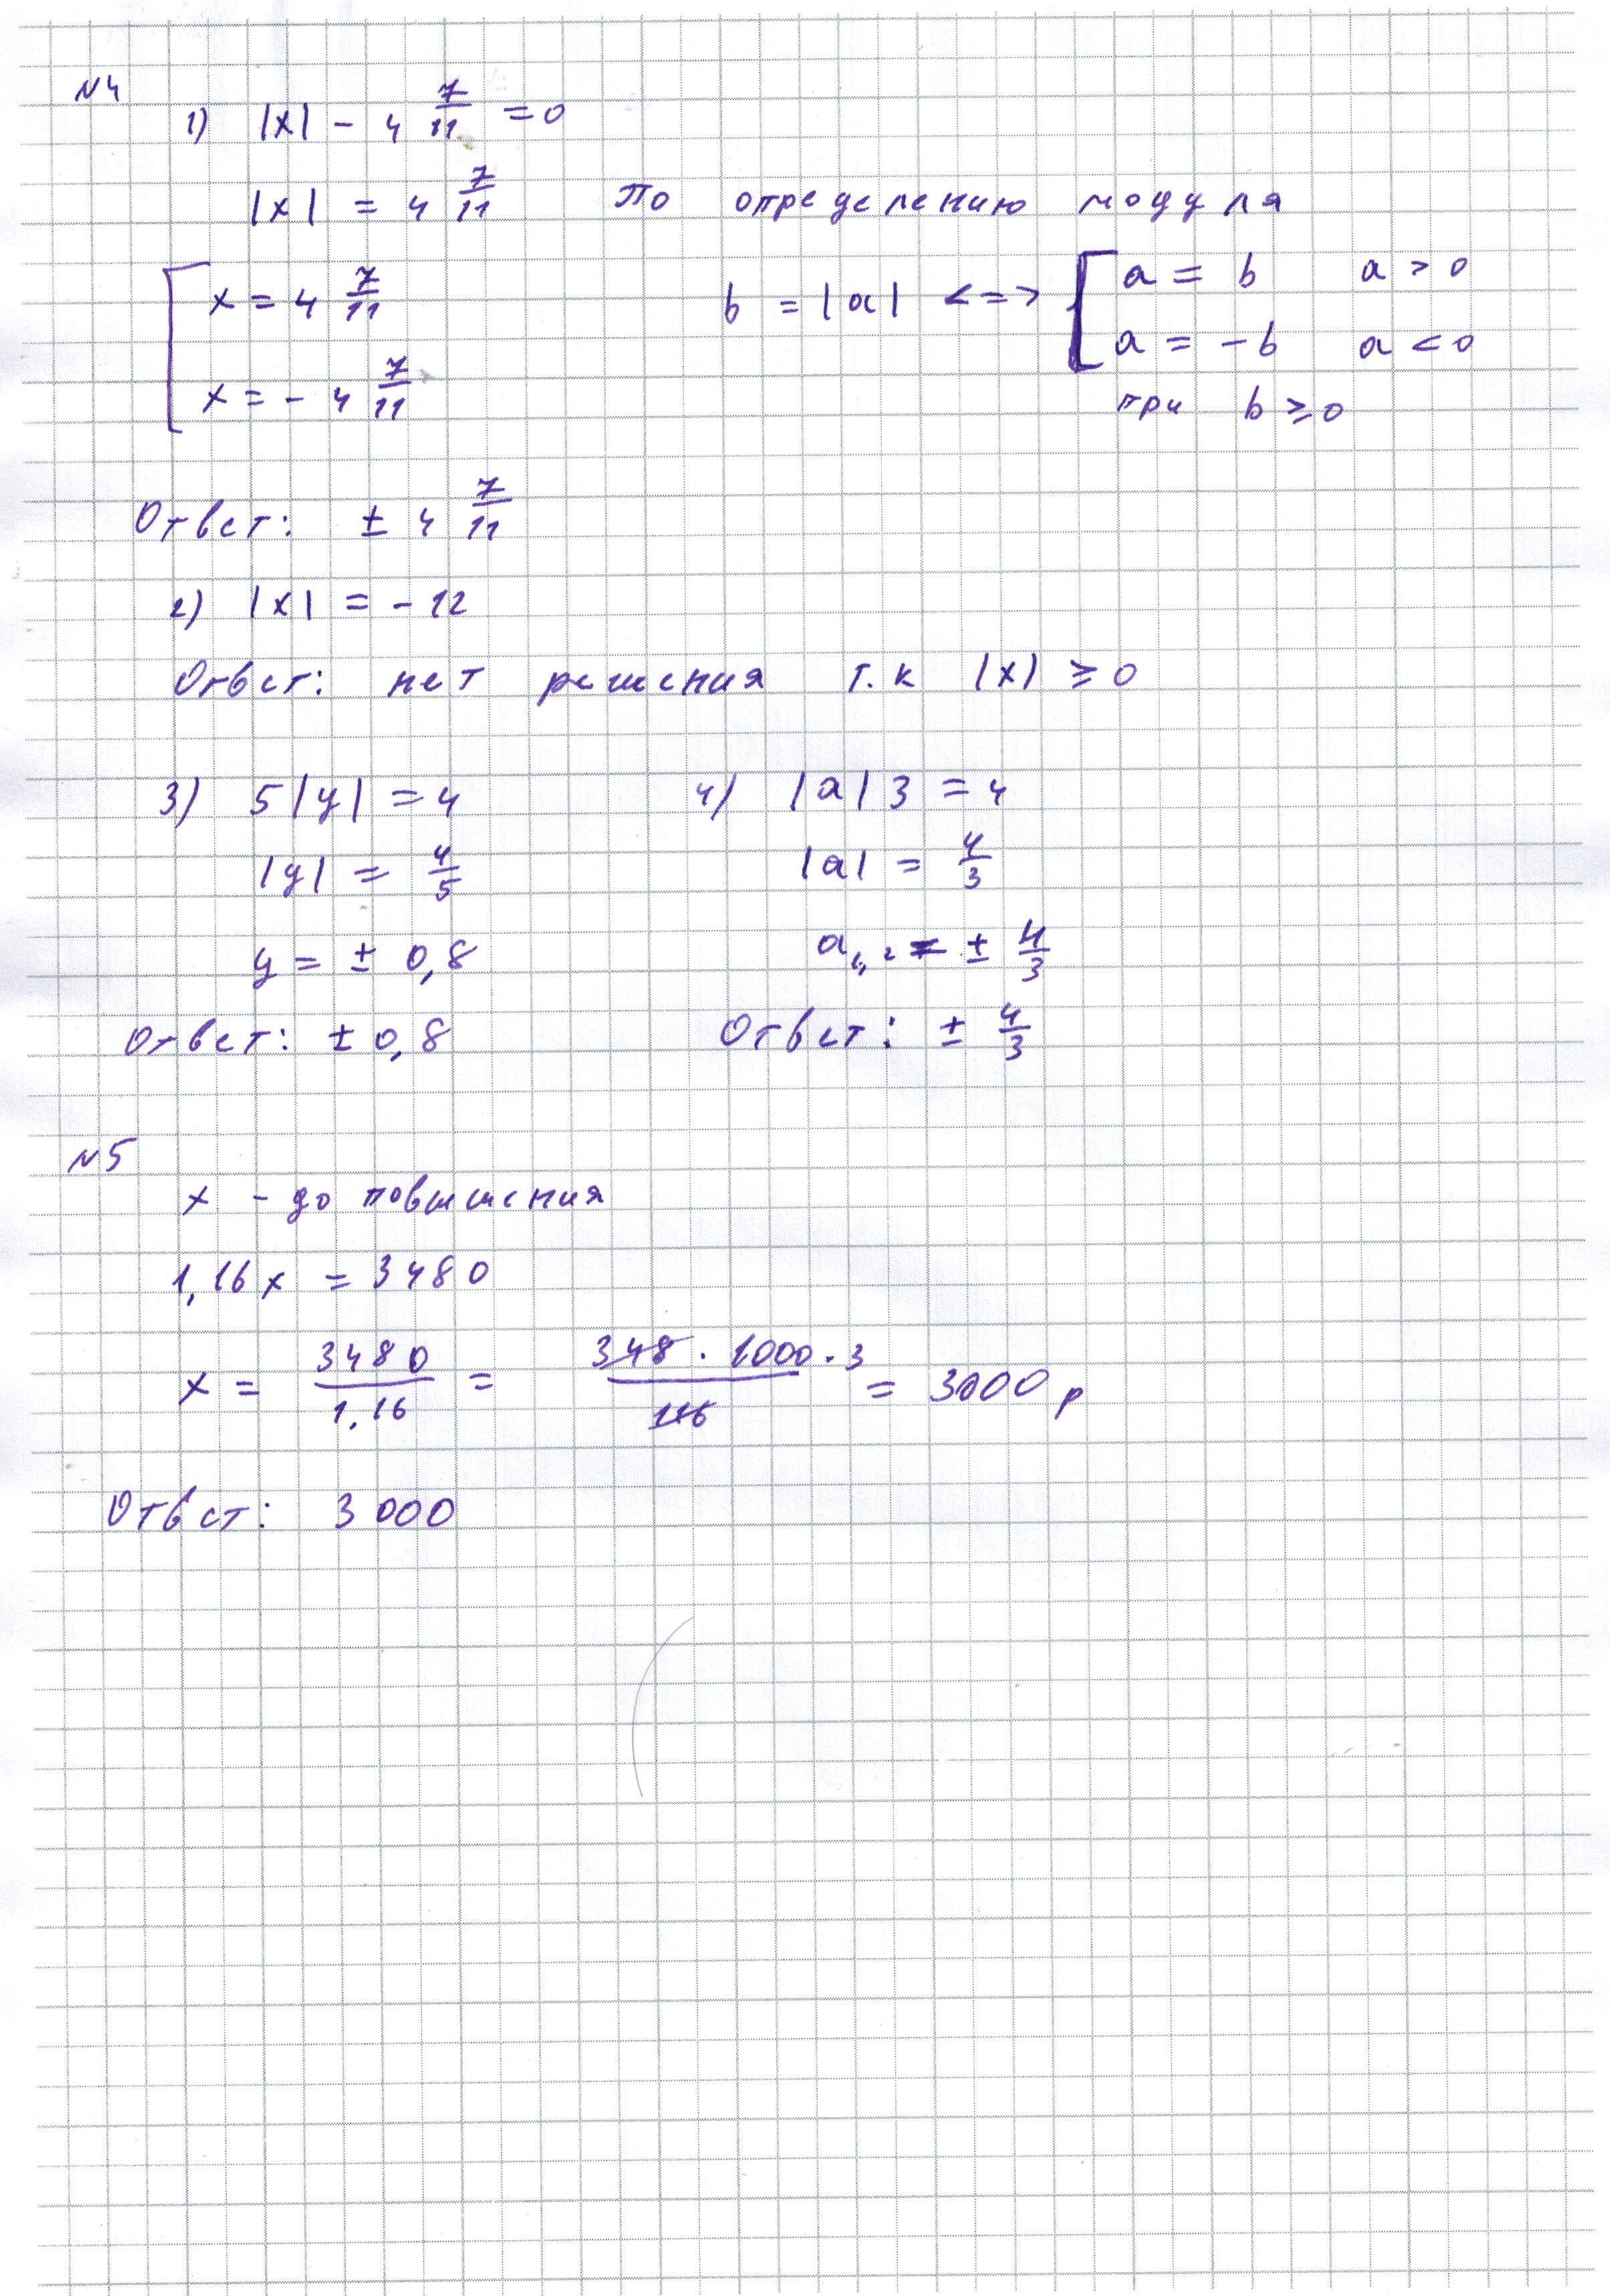 №4
1) |x| - 4 7/11 = 0
|x| = 4 7/11 По определению модуля
x = 4 7/11 b = |a| <=> [ a = b a > 0
x = - 4 7/11 a = -b a < 0
при b ≥ 0
Ответ: ± 4 7/11
2) |x| = - 12
Ответ: нет решения т.к |x| ≥ 0
3) 5|y| = 4 4) |a| 3 = 4
|y| = 4/5 |a| = 4/3
y = ± 0,8 a1,2 = ± 4/3
Ответ: ± 0,8 Ответ: ± 4/3
№5
x - до повышения
1,16x = 3480
x = 3480/1.16 = 348 · 1000 · 3/116 = 3000 р
Ответ: 3000